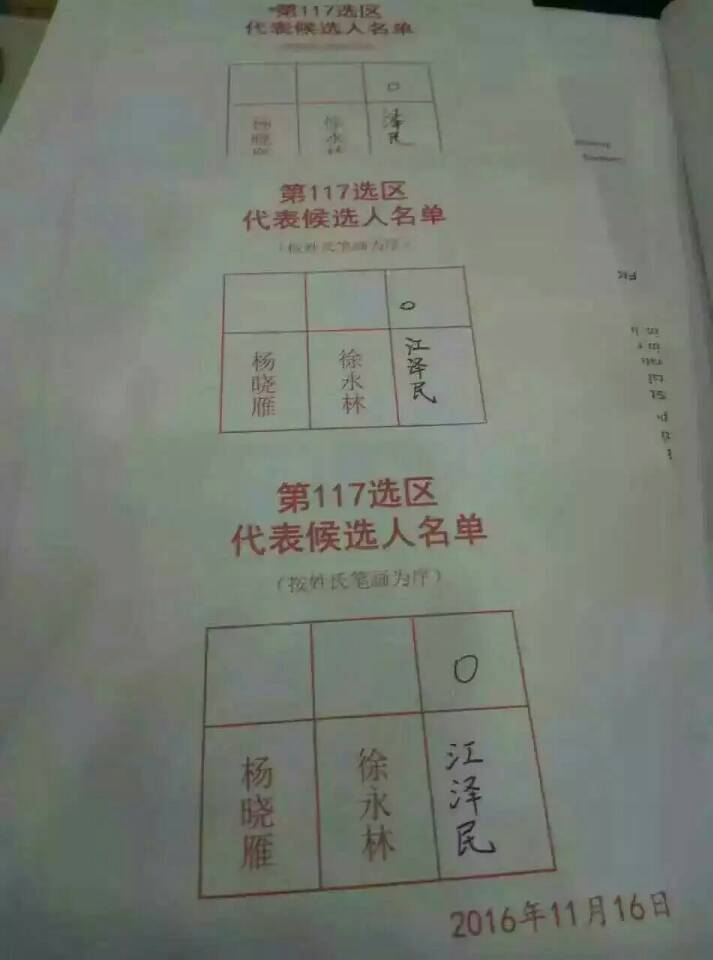 第117选区
代表候选人名单
○
杨晓
徐永
泽民
第117选区
代表候选人名单
(按姓氏笔画为序)
○
杨晓雁
徐永林
江泽民
第117选区
代表候选人名单
(按姓氏笔画为序)
○
杨晓雁
徐永林
江泽民
2016年11月16日